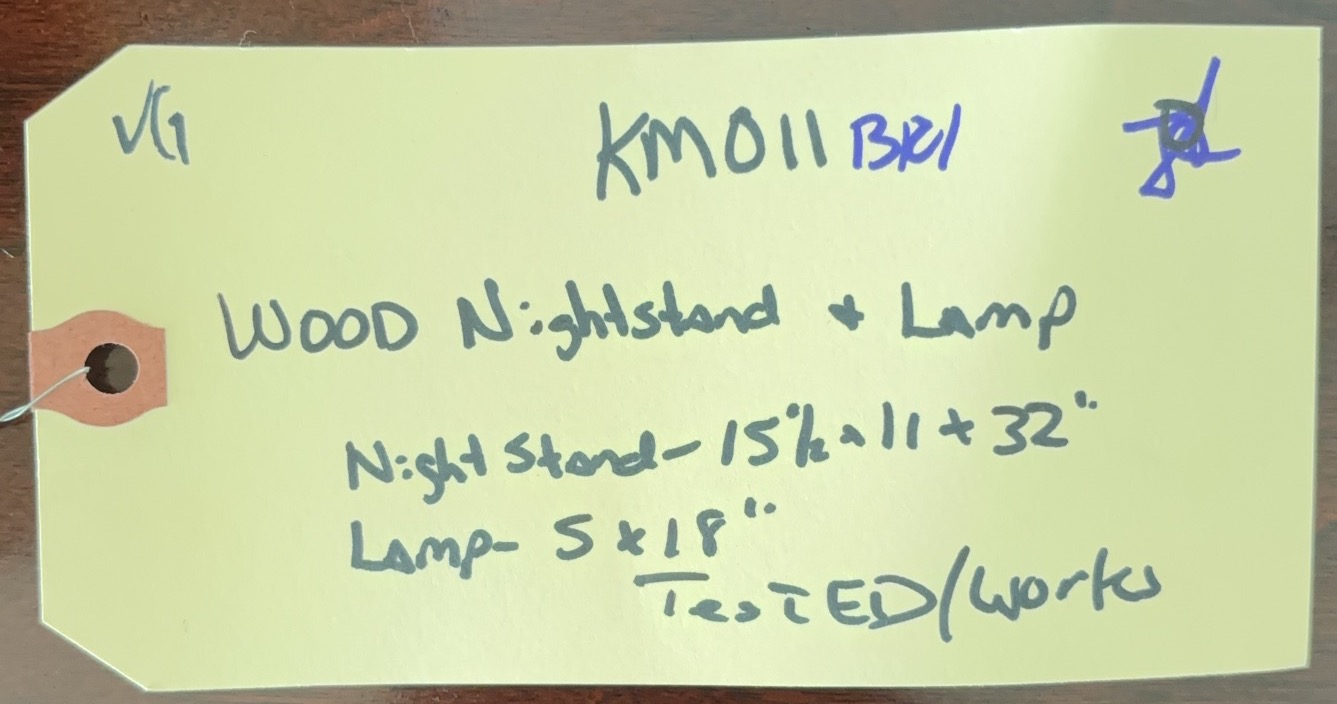 VG KM011 BR1
WOOD Nightstand + Lamp
Night Stand - 15 1/2 x 11 x 32"
Lamp - 5 x 18"
TesTED/Works